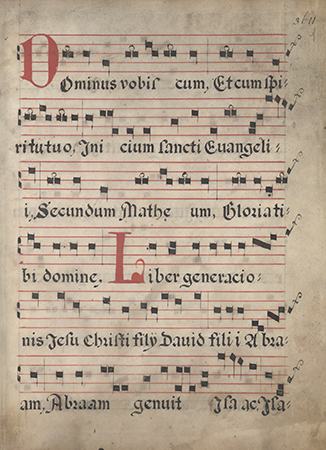 Dominus vobis cum, Et cum spi-
ritu tuo, Ini cium sancti Euangeli-
i, Secundum Mathe um, Gloria ti-
bi domine. Liber generacio-
nis Jesu Christi filij Dauid fili i Abra-
am, Abraam genuit Isa ac. Isa-